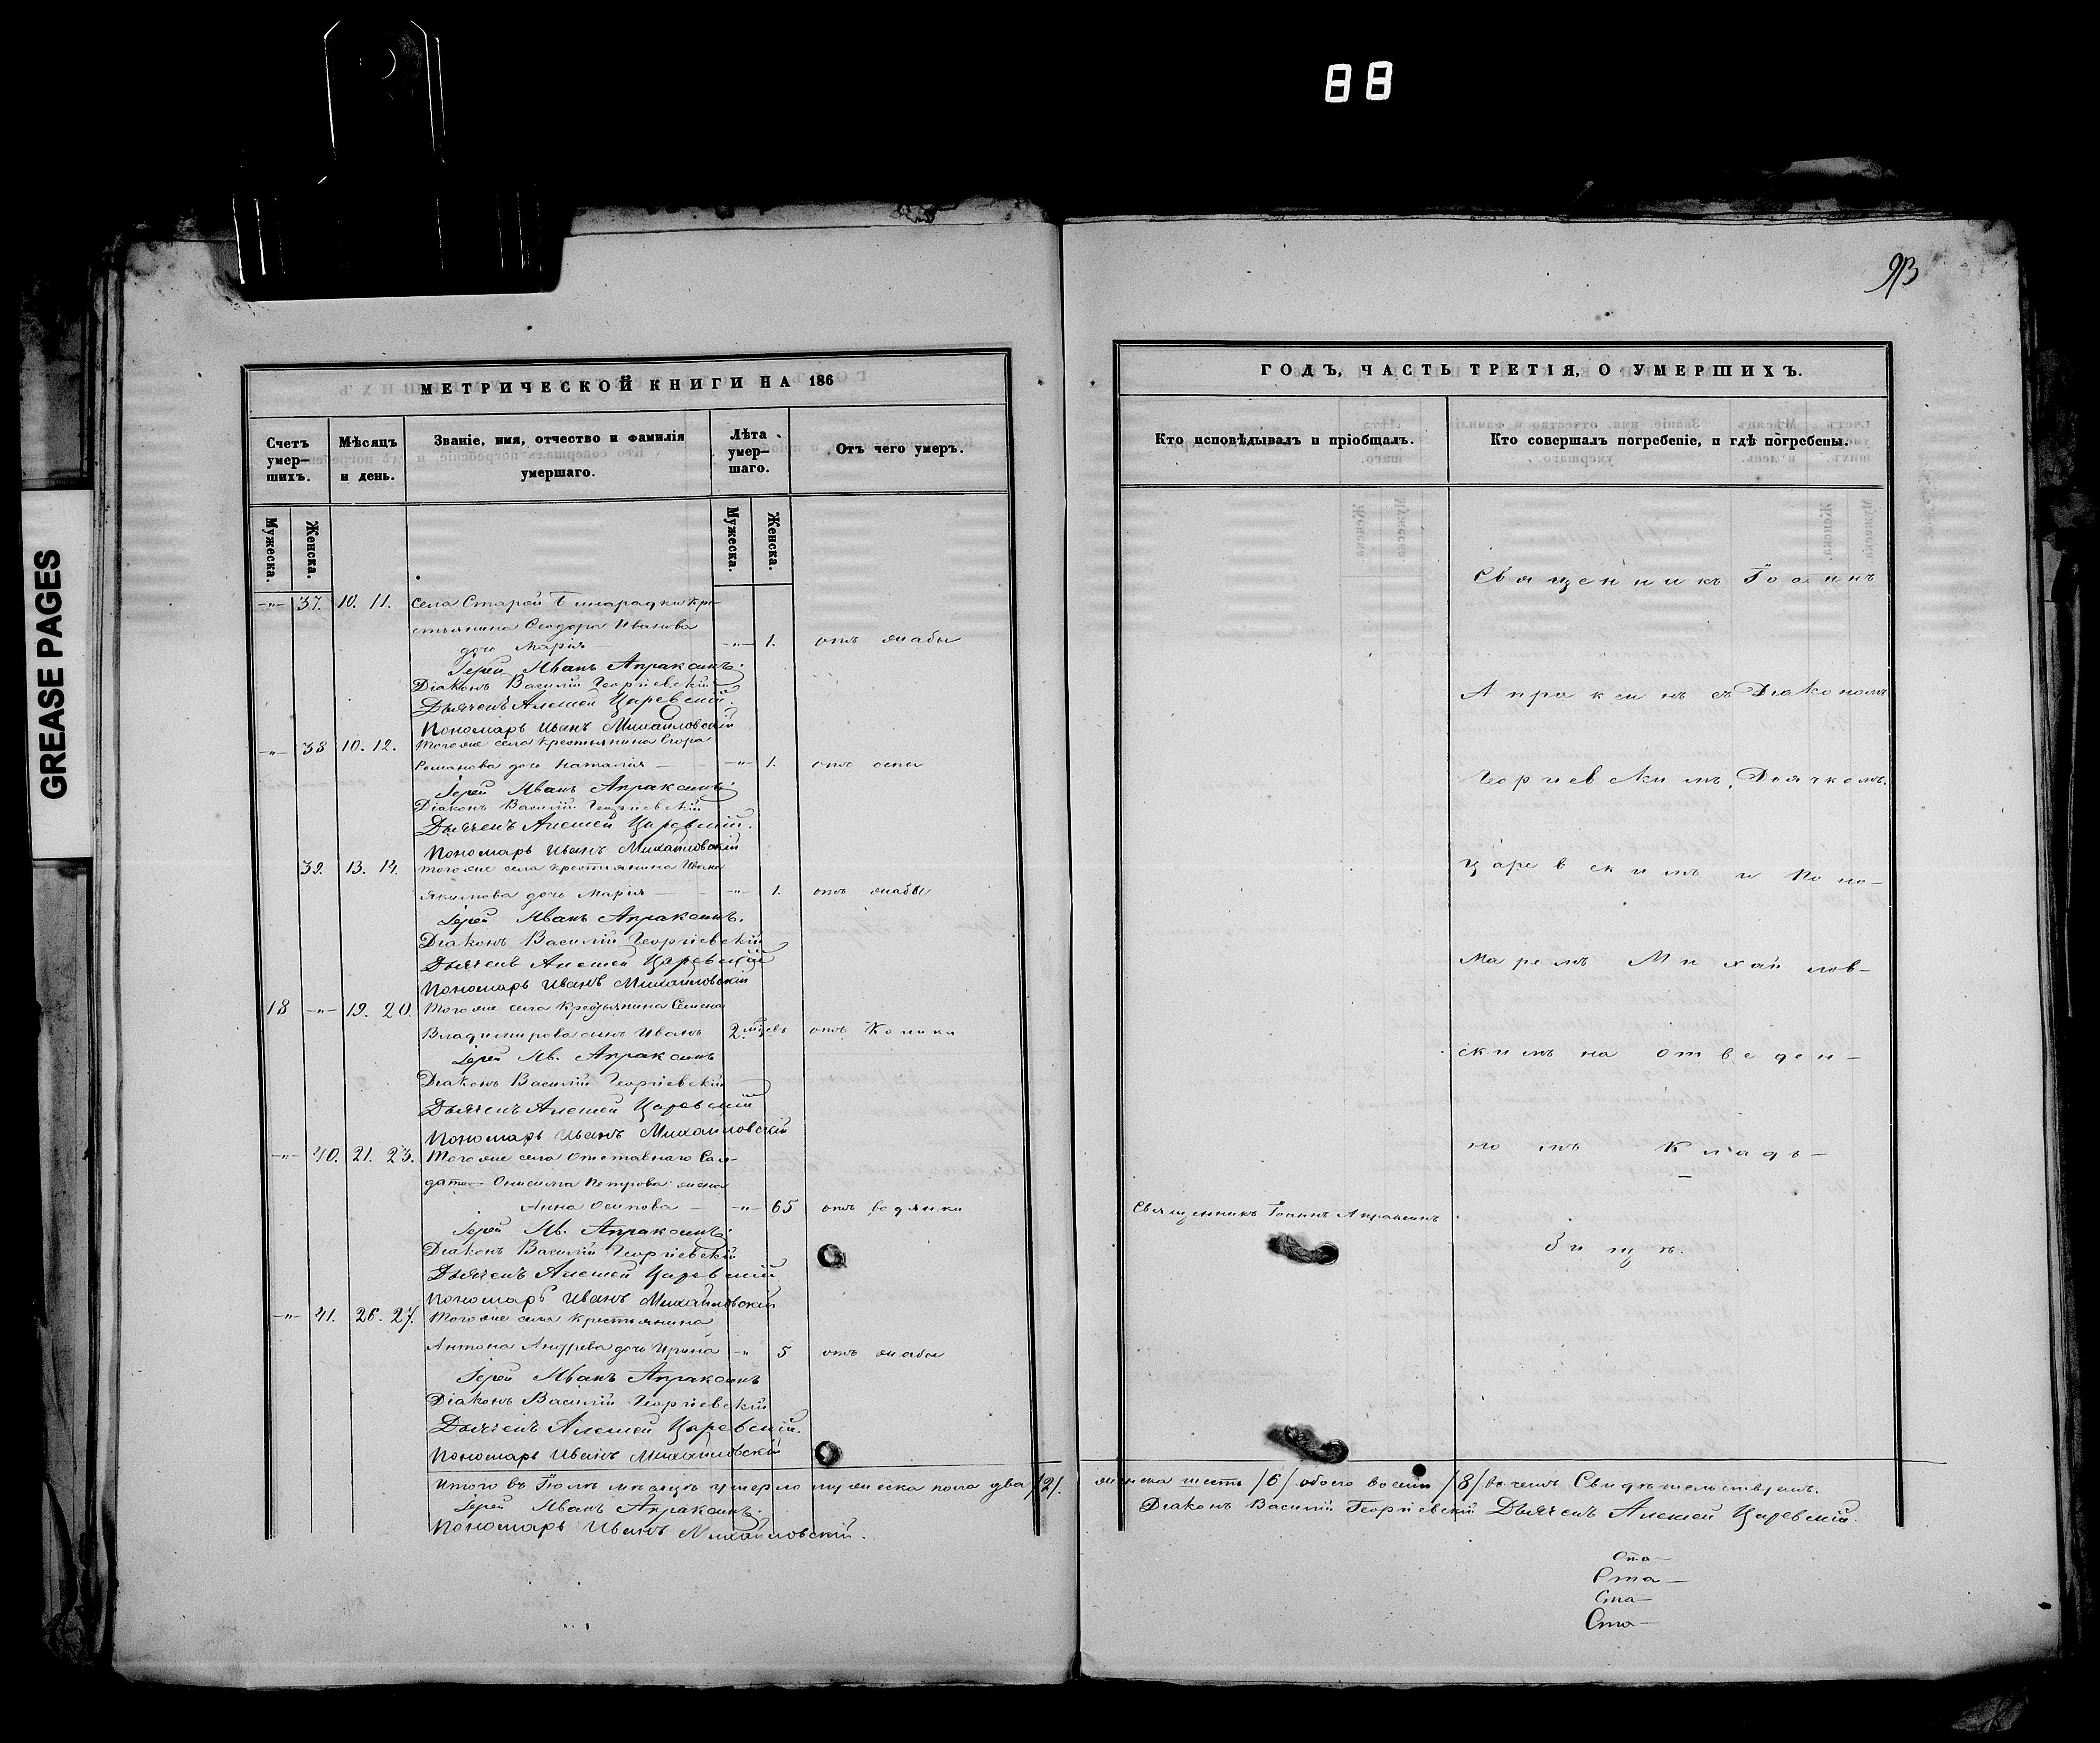 88
GREASE PAGES
93
МЕТРИЧЕСКОЙ КНИГИ НА 186
Счетъ умер-шихъ.
Мѣсяцъ и день.
Званіе, имя, отчество и фамилія умершаго.
Лѣта умер-шаго.
Отъ чего умеръ.
Мужеска.
Женска.
Мужеска.
Женска.
-"- 37. 10. 11. Села Старой Бинарадки кре-
стьянина Ѳеодора Иванова
дочь Марія -"- 1. отъ жабы
Іерей Иванъ Апраксинъ.
Діаконъ Василій Георгіевскій
Дьячекъ Алексей Царевскій.
Пономарь Иванъ Михайловскій
-"- 38 10. 12. Тогоже села крестьянина Егора
Романова дочь Наталія -"- 1. отъ оспы
Іерей Иванъ Апраксинъ
Діаконъ Василій Георгіевскій
Дьячекъ Алексей Царевскій.
Пономарь Иванъ Михайловскій
39. 13. 14. Тогоже села крестьянина Ивана
Якимова дочь Марія -"- 1. отъ жабы
Іерей Иванъ Апраксинъ.
Діаконъ Василій Георгіевскій
Дьячекъ Алексей Царевскій
Пономарь Иванъ Михайловскій
18 -"- 19. 20. Тогоже села крестьянина Семена
Владимирова сынъ Иванъ 2. отъ колики
Іерей Ив. Апраксинъ
Діаконъ Василій Георгіевскій
Дьячекъ Алексей Царевскій
Пономарь Иванъ Михайловскій
-"- 40. 21. 23. Тогоже села отставнаго Сол-
дата Онисима Петрова жена
Анна Осипова -"- 65 отъ водянки
Іерей Ив. Апраксинъ.
Діаконъ Василій Георгіевскій
Дьячекъ Алексей Царевскій
Пономарь Иванъ Михайловскій
-"- 41. 26. 27. Тогоже села крестьянина
Антона Андрева дочь Ирина -"- 5 отъ жабы
Іерей Иванъ Апраксинъ
Діаконъ Василій Георгіевскій
Дьячекъ Алексей Царевскій.
Пономарь Иванъ Михайловскій
Итого въ Іюлѣ мѣсяцѣ умерло мужеска пола два /2/.
Іерей Иванъ Апраксинъ.
Пономарь Иванъ Михайловскій.
ГОДЪ, ЧАСТЬ ТРЕТІЯ, О УМЕРШИХЪ.
Кто исповѣдывалъ и пріобщалъ.
Кто совершалъ погребеніе, и гдѣ погребены.
Священникъ Іоаннъ
Апраксинъ съ Діакономъ
Георгіевскимъ, Дьячкомъ
Царевскимъ и Поно-
маремъ Михайлов-
скимъ на отведен-
номъ клад-
Священникъ Іоаннъ Апраксинъ
бищѣ.
женска шесть /6/ обоего восемь /8/ въ чемъ Свидѣтельствуемъ.
Діаконъ Василій Георгіевскій Дьячекъ Алексей Царевскій.
Ста-
Ста-
Ста-